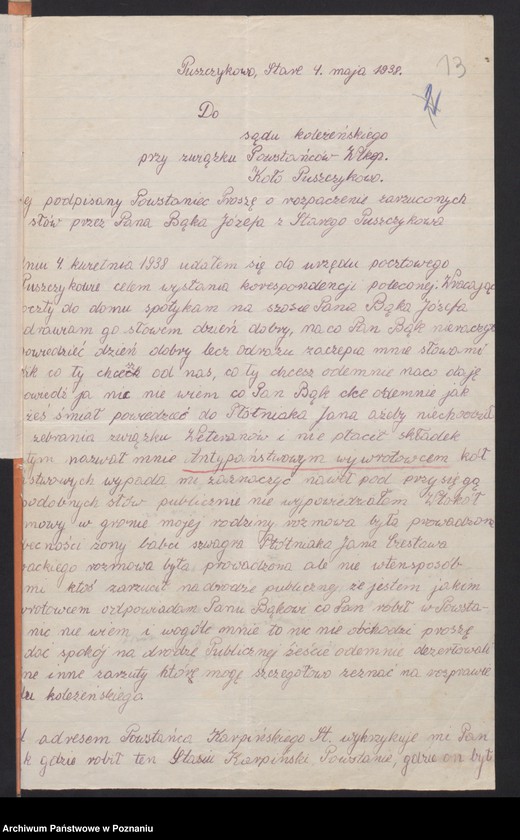 Puszczykowo, Stare 4. maja 1938.
13
Do
sądu koleżeńskiego
przy związku Powstańców Wlkp.
Koło Puszczykowo.
podpisany Powstaniec Proszę o rozpaczenie zarzuconych
słów przez Pana Bąka Józefa z Starego Puszczykowa
dniu 4. kwietnia 1938 udałem się do urzędu pocztowego
Puszczykowie celem wysłania korespondencji poleconej. Wracając
poczty do domu spotykam na szosie Pana Bąka Józefa
go słowem dzień dobry, na co Pan Bąk nieraczył
powiedzieć dzień dobry lecz odrazu zaczepia mnie słowami
co ty chcesz od nas, co ty chcesz odemnie na co
ja nic nie wiem co Pan Bąk chce odemnie jak
żeś śmiał powiedzieć do Płótniaka Jana ażeby niechodził
zebrania związku Weteranów i nie płacić składek
tym nazwał mnie Antypaństwowym wywrotowcem kół
wypada mi zaznaczyć nawet pod przysięgą
podobnych słów publicznie nie wypowiedziałem
w gronie mojej rodziny rozmowa była prowadzona
żony babci szwagra Płótniaka Jana Czesława
rozmowa była prowadzona ale nie wtensposób
mi ktoś zarzucił nadrodze publicznej że jestem jakim
odpowiadam Panu Bąkowi co Pan robił w Powsta-
nic nie wiem i wogóle mnie to nic nie obchodzi proszę
dać spokój na drodze Publicznej żeście odemnie dezertowali
inne zarzuty które mogę szczegółowo zeznać na rozprawie
koleżeńskiego
adresem Powstańca Karpińskiego St. wykrzykuje mi Pan
gdzie robił ten Stasiu Karpiński Powstanie, gdzie on był
Archiwum Państwowe w Poznaniu